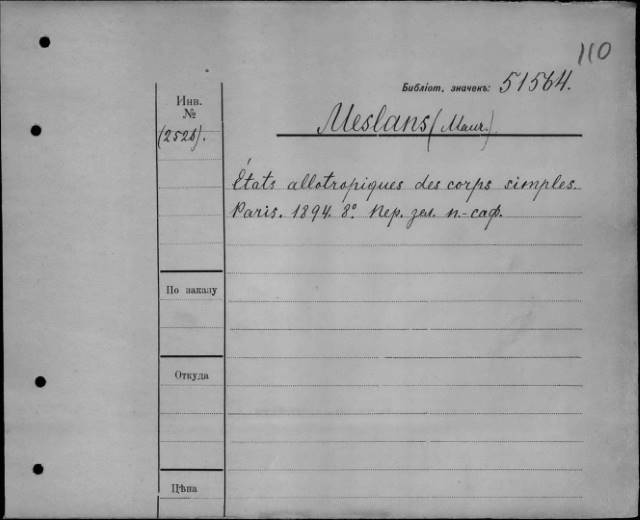 110
Библіот. значекъ: 51564.
Инв.
№
(2526).
Meslans (Maur.)
États allotropiques des corps simples.
Paris. 1894. 8º. Пер. зел. п.-саф.
По заказу
Откуда
Цѣна